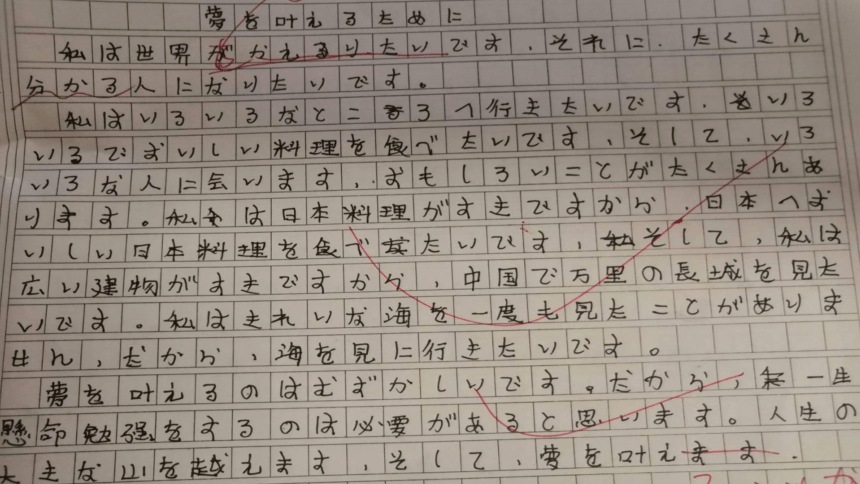 夢を叶えるために
私は世界がかえるりたいです、それに、たくさん
分かる人になりたいです。
私はいろいろなところへ行きたいです、いろ
いろでおいしい料理を食べたいです、そして、いろ
いろな人に会います、おもしろいことがたくさんあ
ります。私は日本料理がすきですから、日本へお
いしい日本料理を食べたいです、そして、私は
広い建物がすきですから、中国で万里の長城を見た
いです。私はきれいな海を一度も見たことがありま
せん、だから、海を見に行きたいです。
夢を叶えるのはむずかしいです。だから、一生
懸命勉強をするのは必要があると思います。人生の
大きな山を越えます、そして、夢を叶えます.